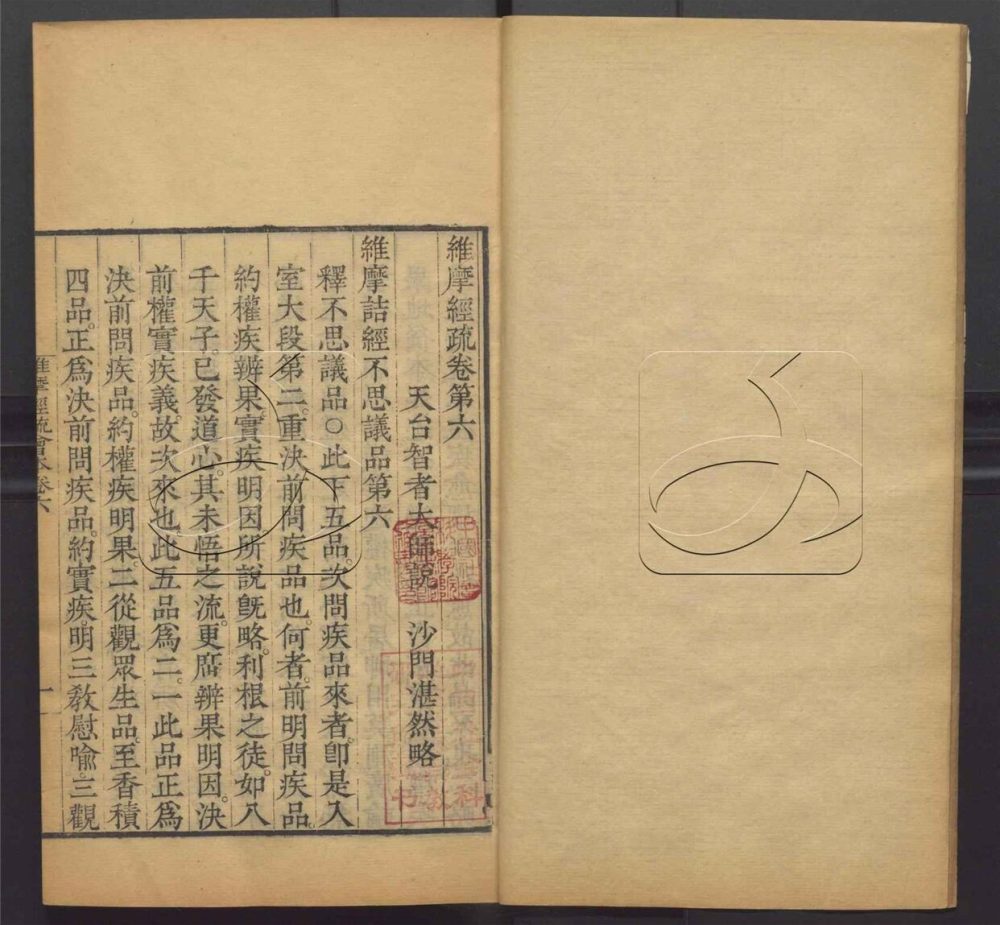 維摩經疏卷第六
天台智者大師說　沙門湛然略
維摩詰經不思議品第六
釋不思議品○此下五品次問疾品來者卽是入
室大段第二重決前問疾品也。何者。前明問疾品。
約權疾辨果。實疾明因所說旣略。利根之徒。如八
千天子。已發道心。其未悟之流。更廣辨果明因。決
前權實疾義。故次來也。此五品爲二。一此品正爲
決前問疾品。約權疾明果。二從觀眾生品。至香積
四品。正爲決前問疾品。約實疾。明三敎慰喻。三觀
維摩經疏會本卷六
一